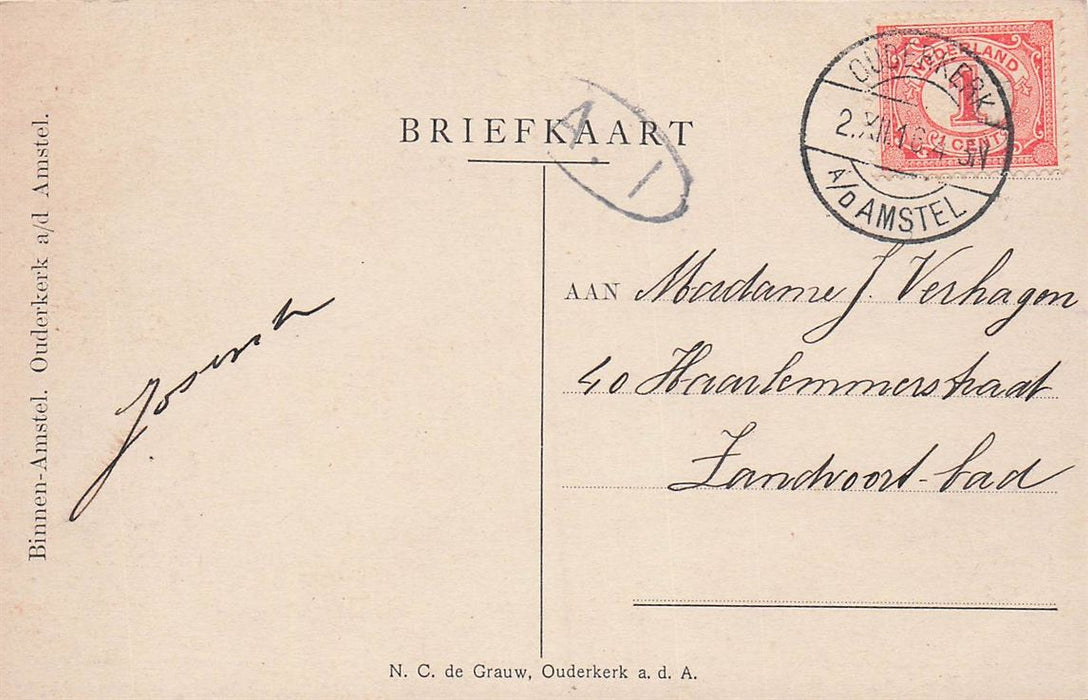 BRIEFKAART
NEDERLAND
1
CENT
OUDERKERK
2.XII.16.4-5N
A/D AMSTEL
A. I
AAN Madame J. Verhagen
40 Haarlemmerstraat
Zandvoort-bad
Binnen-Amstel. Ouderkerk a/d Amstel.
N. C. de Grauw, Ouderkerk a. d. A.